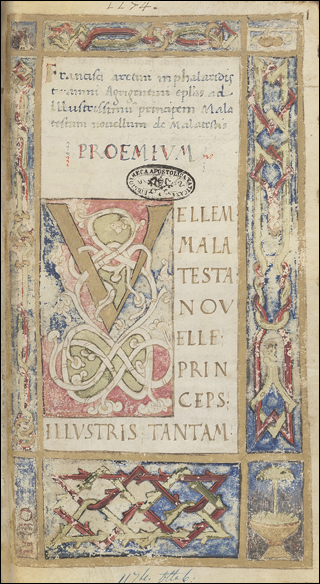 1174.
1
Francisci aretini in phalaridis
tyranni Agrigentini eplas ad
Illustrissimum principem Mala
testam novellum de Malatestis
PROEMIUM
VELLEM
MALA
TESTA
NOV
ELLE:
PRIN
CEPS:
ILLVSTRIS TANTAM:
1174.